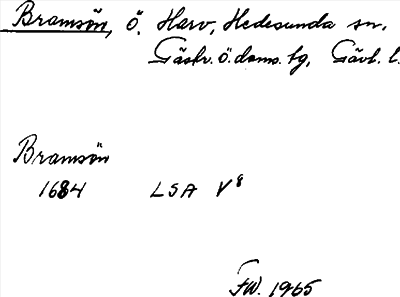 Bramsön, ö. Harv, Hedesunda sn,
Gästr. ö. doms. tg, Gävl. l.
Bramsön
1684 LSA V8
FW. 1965